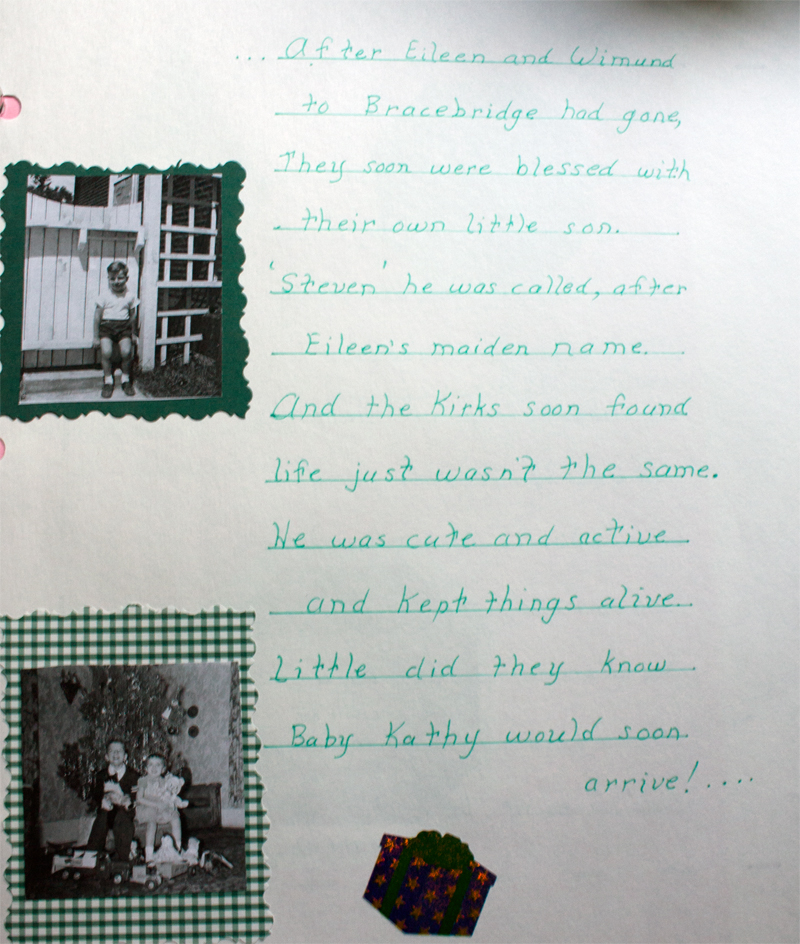 ... After Eileen and Wimund
to Bracebridge had gone,
They soon were blessed with
their own little son.
'Steven' he was called, after
Eileen's maiden name.
And the Kirks soon found
life just wasn't the same.
He was cute and active
and kept things alive.
Little did they know
Baby Kathy would soon
arrive!....